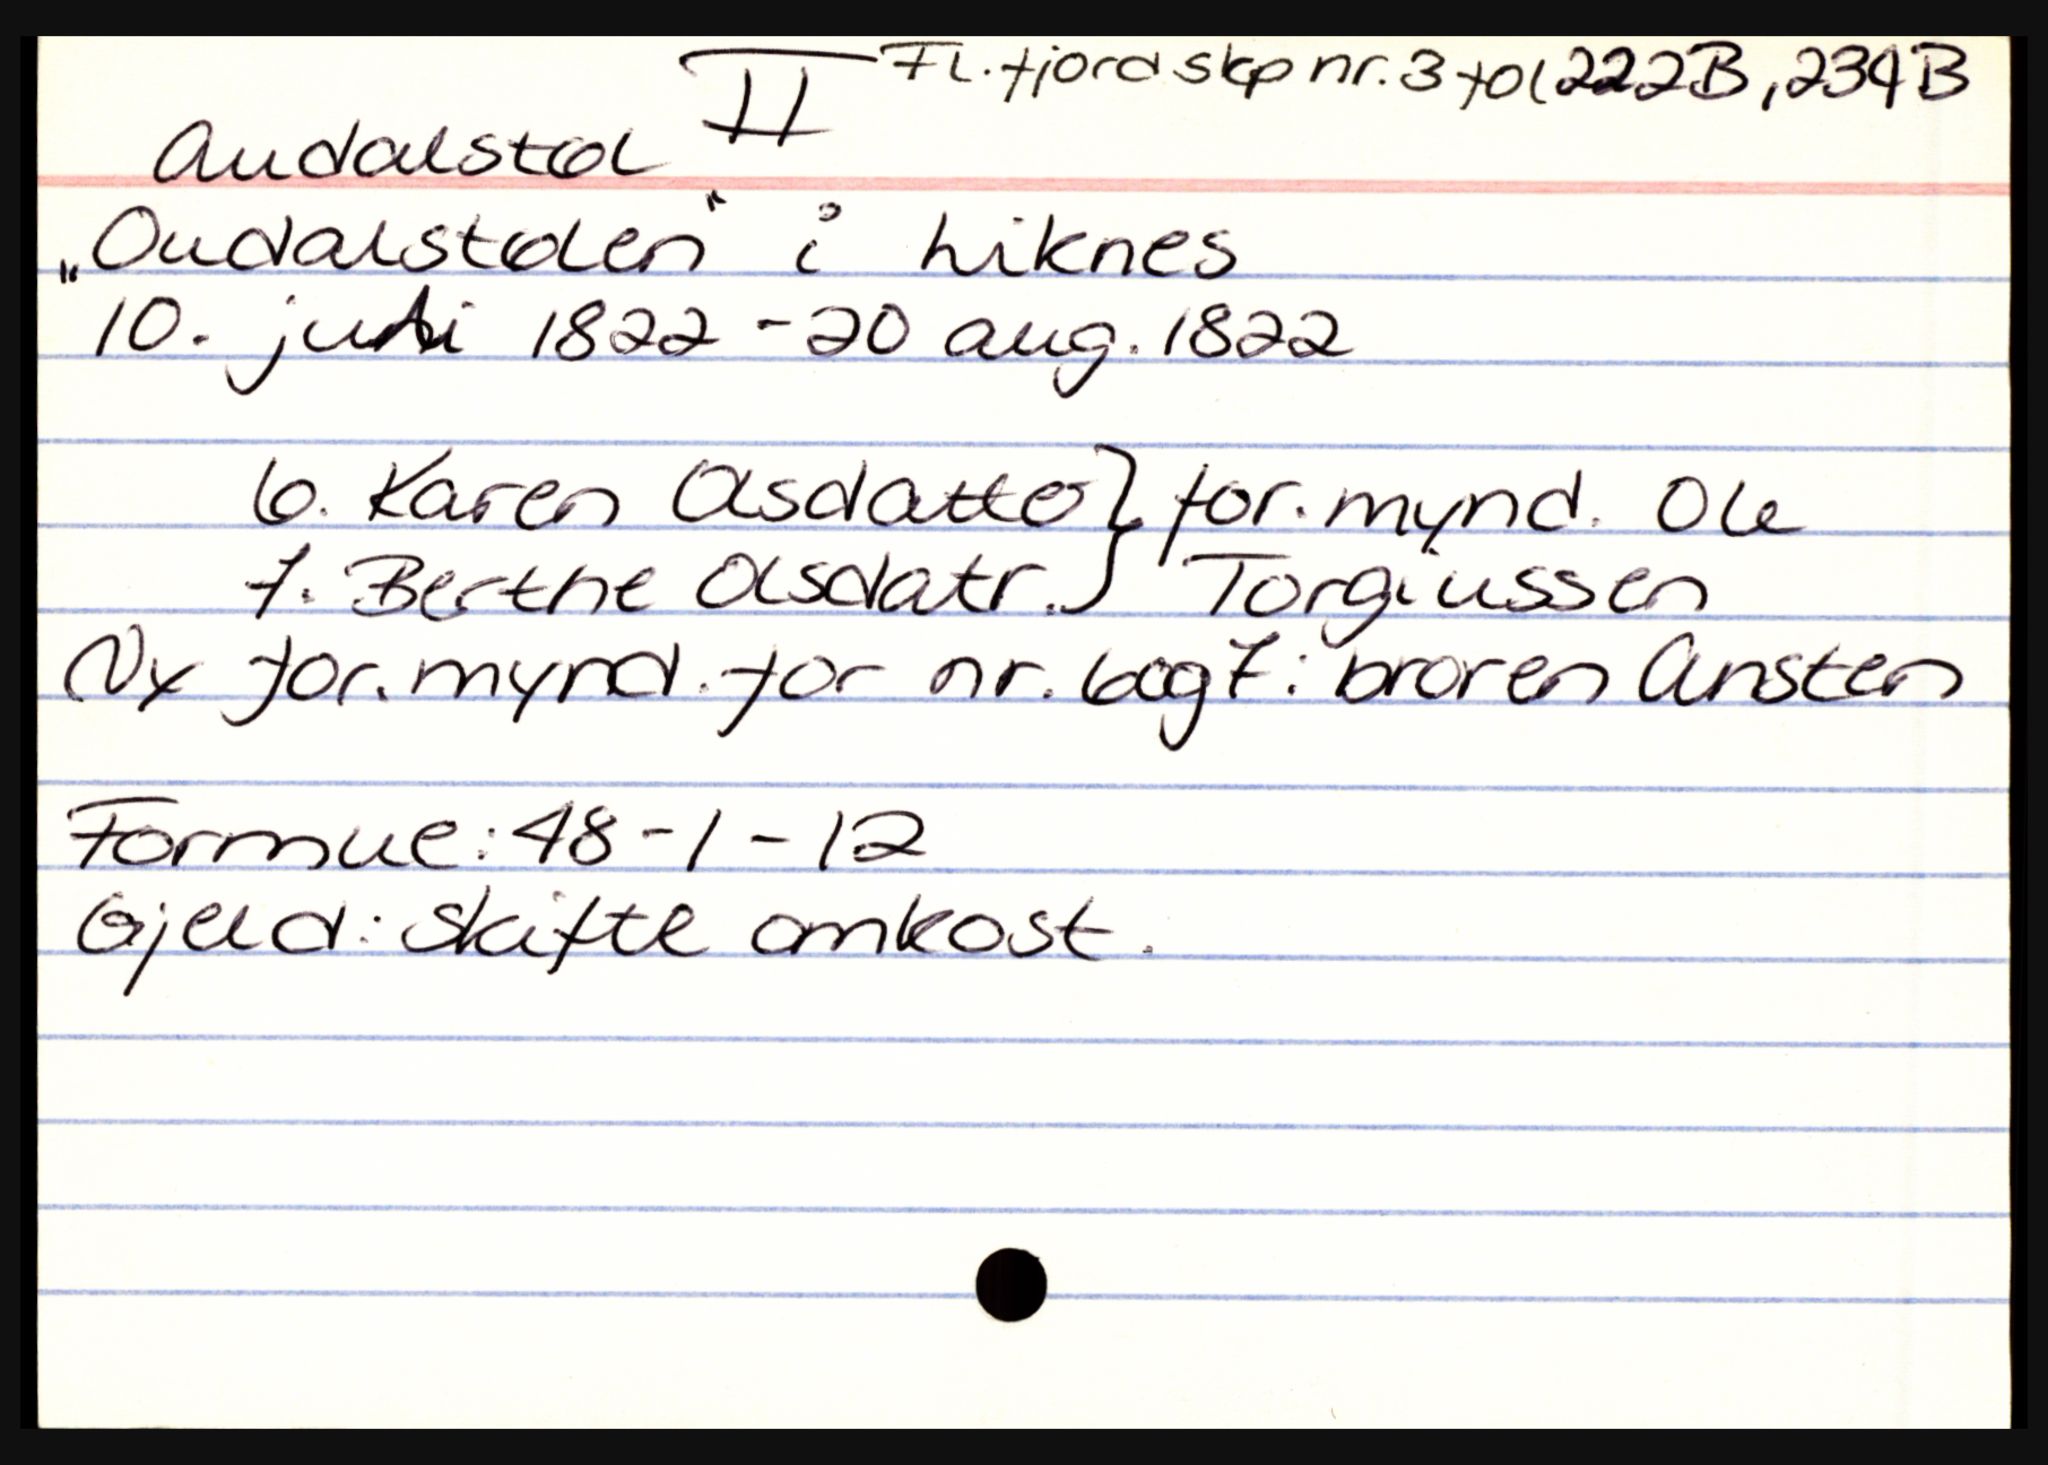 II Fl. fjord skp nr. 3 fol 222B, 234B
Audalstøl
„Oudalstølen" i Liknes
10. juli 1822 - 20 aug. 1822
6. Karen Olsdatte } for.mynd. Ole
7. Berthe Olsdatr. } Torgiussen
Ny for.mynd. for nr. 6 og 7: broren Ansten
Formue: 48-1-12
Gjeld: Skifte omkost.